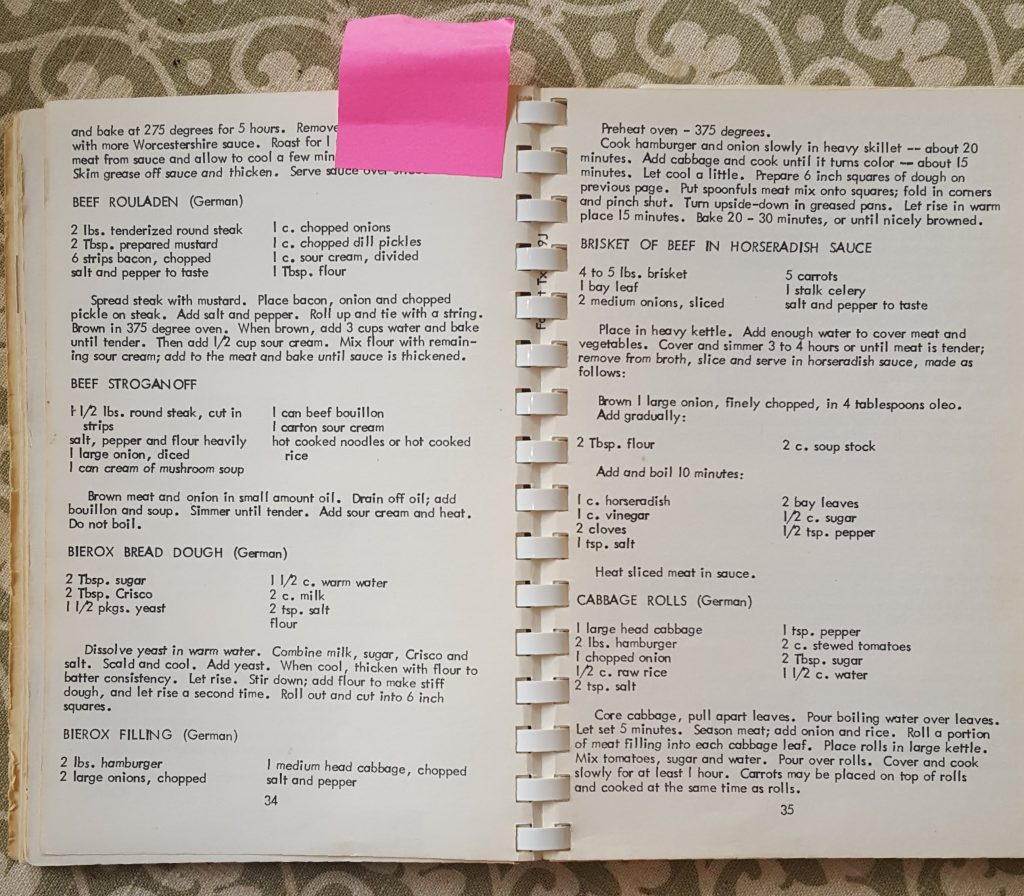 and bake at 275 degrees for 5 hours. Remove
with more Worcestershire sauce. Roast for 1
meat from sauce and allow to cool a few min
Skim grease off sauce and thicken. Serve sauce over
BEEF ROULADEN (German)
2 lbs. tenderized round steak
2 Tbsp. prepared mustard
6 strips bacon, chopped
salt and pepper to taste
1 c. chopped onions
1 c. chopped dill pickles
1 c. sour cream, divided
1 Tbsp. flour
Spread steak with mustard. Place bacon, onion and chopped
pickle on steak. Add salt and pepper. Roll up and tie with a string.
Brown in 375 degree oven. When brown, add 3 cups water and bake
until tender. Then add 1/2 cup sour cream. Mix flour with remain-
ing sour cream; add to the meat and bake until sauce is thickened.
BEEF STROGANOFF
1 1/2 lbs. round steak, cut in
strips
salt, pepper and flour heavily
1 large onion, diced
1 can cream of mushroom soup
1 can beef bouillon
1 carton sour cream
hot cooked noodles or hot cooked
rice
Brown meat and onion in small amount oil. Drain off oil; add
bouillon and soup. Simmer until tender. Add sour cream and heat.
Do not boil.
BIEROX BREAD DOUGH (German)
2 Tbsp. sugar
2 Tbsp. Crisco
1 1/2 pkgs. yeast
1 1/2 c. warm water
2 c. milk
2 tsp. salt
flour
Dissolve yeast in warm water. Combine milk, sugar, Crisco and
salt. Scald and cool. Add yeast. When cool, thicken with flour to
batter consistency. Let rise. Stir down; add flour to make stiff
dough, and let rise a second time. Roll out and cut into 6 inch
squares.
BIEROX FILLING (German)
2 lbs. hamburger
2 large onions, chopped
1 medium head cabbage, chopped
salt and pepper
34
Preheat oven - 375 degrees.
Cook hamburger and onion slowly in heavy skillet -- about 20
minutes. Add cabbage and cook until it turns color -- about 15
minutes. Let cool a little. Prepare 6 inch squares of dough on
previous page. Put spoonfuls meat mix onto squares; fold in corners
and pinch shut. Turn upside-down in greased pans. Let rise in warm
place 15 minutes. Bake 20 - 30 minutes, or until nicely browned.
BRISKET OF BEEF IN HORSERADISH SAUCE
4 to 5 lbs. brisket
1 bay leaf
2 medium onions, sliced
5 carrots
1 stalk celery
salt and pepper to taste
Place in heavy kettle. Add enough water to cover meat and
vegetables. Cover and simmer 3 to 4 hours or until meat is tender;
remove from broth, slice and serve in horseradish sauce, made as
follows:
Brown 1 large onion, finely chopped, in 4 tablespoons oleo.
Add gradually:
2 Tbsp. flour
2 c. soup stock
Add and boil 10 minutes:
1 c. horseradish
1 c. vinegar
2 cloves
1 tsp. salt
2 bay leaves
1/2 c. sugar
1/2 tsp. pepper
Heat sliced meat in sauce.
CABBAGE ROLLS (German)
1 large head cabbage
2 lbs. hamburger
1 chopped onion
1/2 c. raw rice
2 tsp. salt
1 tsp. pepper
2 c. stewed tomatoes
2 Tbsp. sugar
1 1/2 c. water
Core cabbage, pull apart leaves. Pour boiling water over leaves.
Let set 5 minutes. Season meat; add onion and rice. Roll a portion
of meat filling into each cabbage leaf. Place rolls in large kettle.
Mix tomatoes, sugar and water. Pour over rolls. Cover and cook
slowly for at least 1 hour. Carrots may be placed on top of rolls
and cooked at the same time as rolls.
35